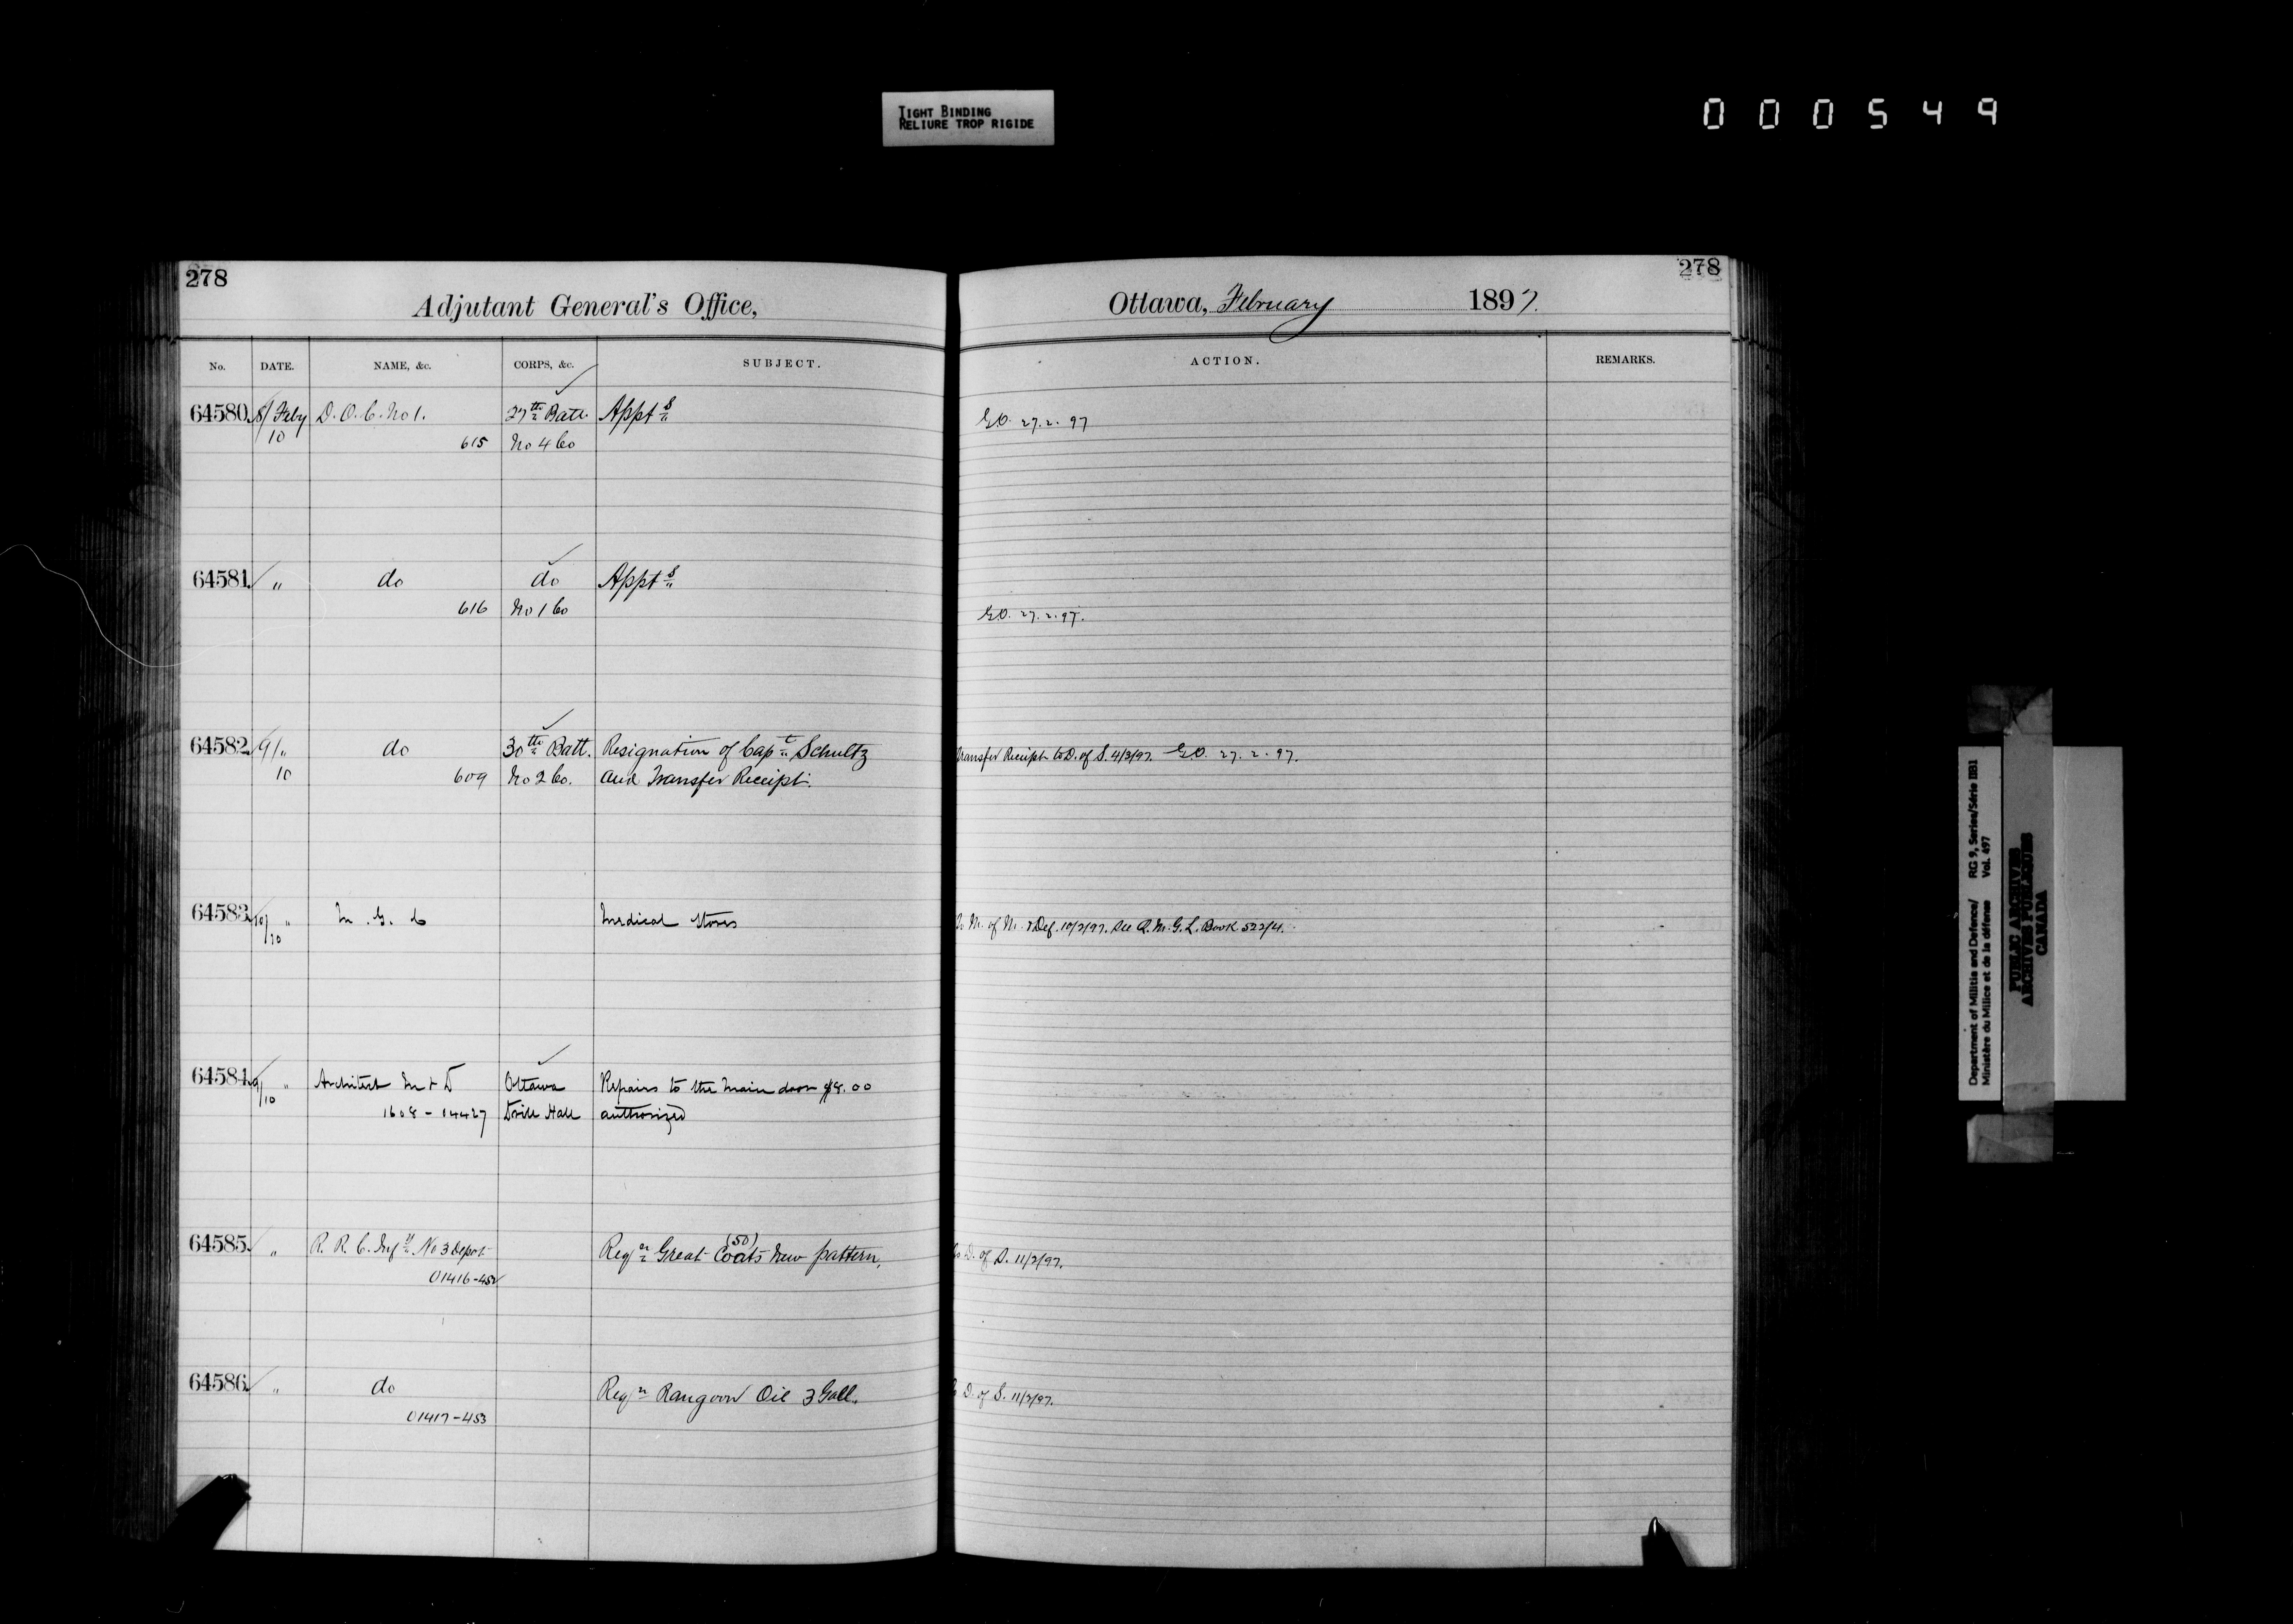 TIGHT BINDING
RELIURE TROP RIGIDE
000549
278
Adjutant General's Office,
No. DATE. NAME, &c. CORPS, &c. SUBJECT.
64580. 8/ Feby D. O. C. No 1. 27th Batt. Appts
10 615 No 4 Co
64581. " do do Appts
616 No 1 Co
64582. 9/" do 30th Batt. Resignation of Capt Schultz
10 609 No 2 Co. and Transfer Receipt.
64583. 10/ " M. G. C Medical Stores
10
64584. 9/ " Architect M & D Ottawa Repairs to the main door $8.00
10 1608 - 14427 Drill Hall authorized
64585. " R. R. C. Infy. No 3 Depot Reqn Great Coats (50) new pattern.
01416-452
64586. " do Reqn Rangoon Oil 3 Gall.
01417-453
278
Ottawa, February 1897.
ACTION. REMARKS.
G.O. 27. 2. 97
G.O. 27. 2. 97.
Transfer Receipt to D. of S. 4/3/97. G.O. 27. 2. 97.
To M. of M. & Def. 10/2/97. See Q. M. G. L. Book 522/4.
To D. of S. 11/2/97.
To D. of S. 11/2/97.
Department of Militia and Defence/ RG 9, Series/Série IIB1
Ministère du Milice et de la défense Vol. 497
PUBLIC ARCHIVES
ARCHIVES PUBLIQUES
CANADA